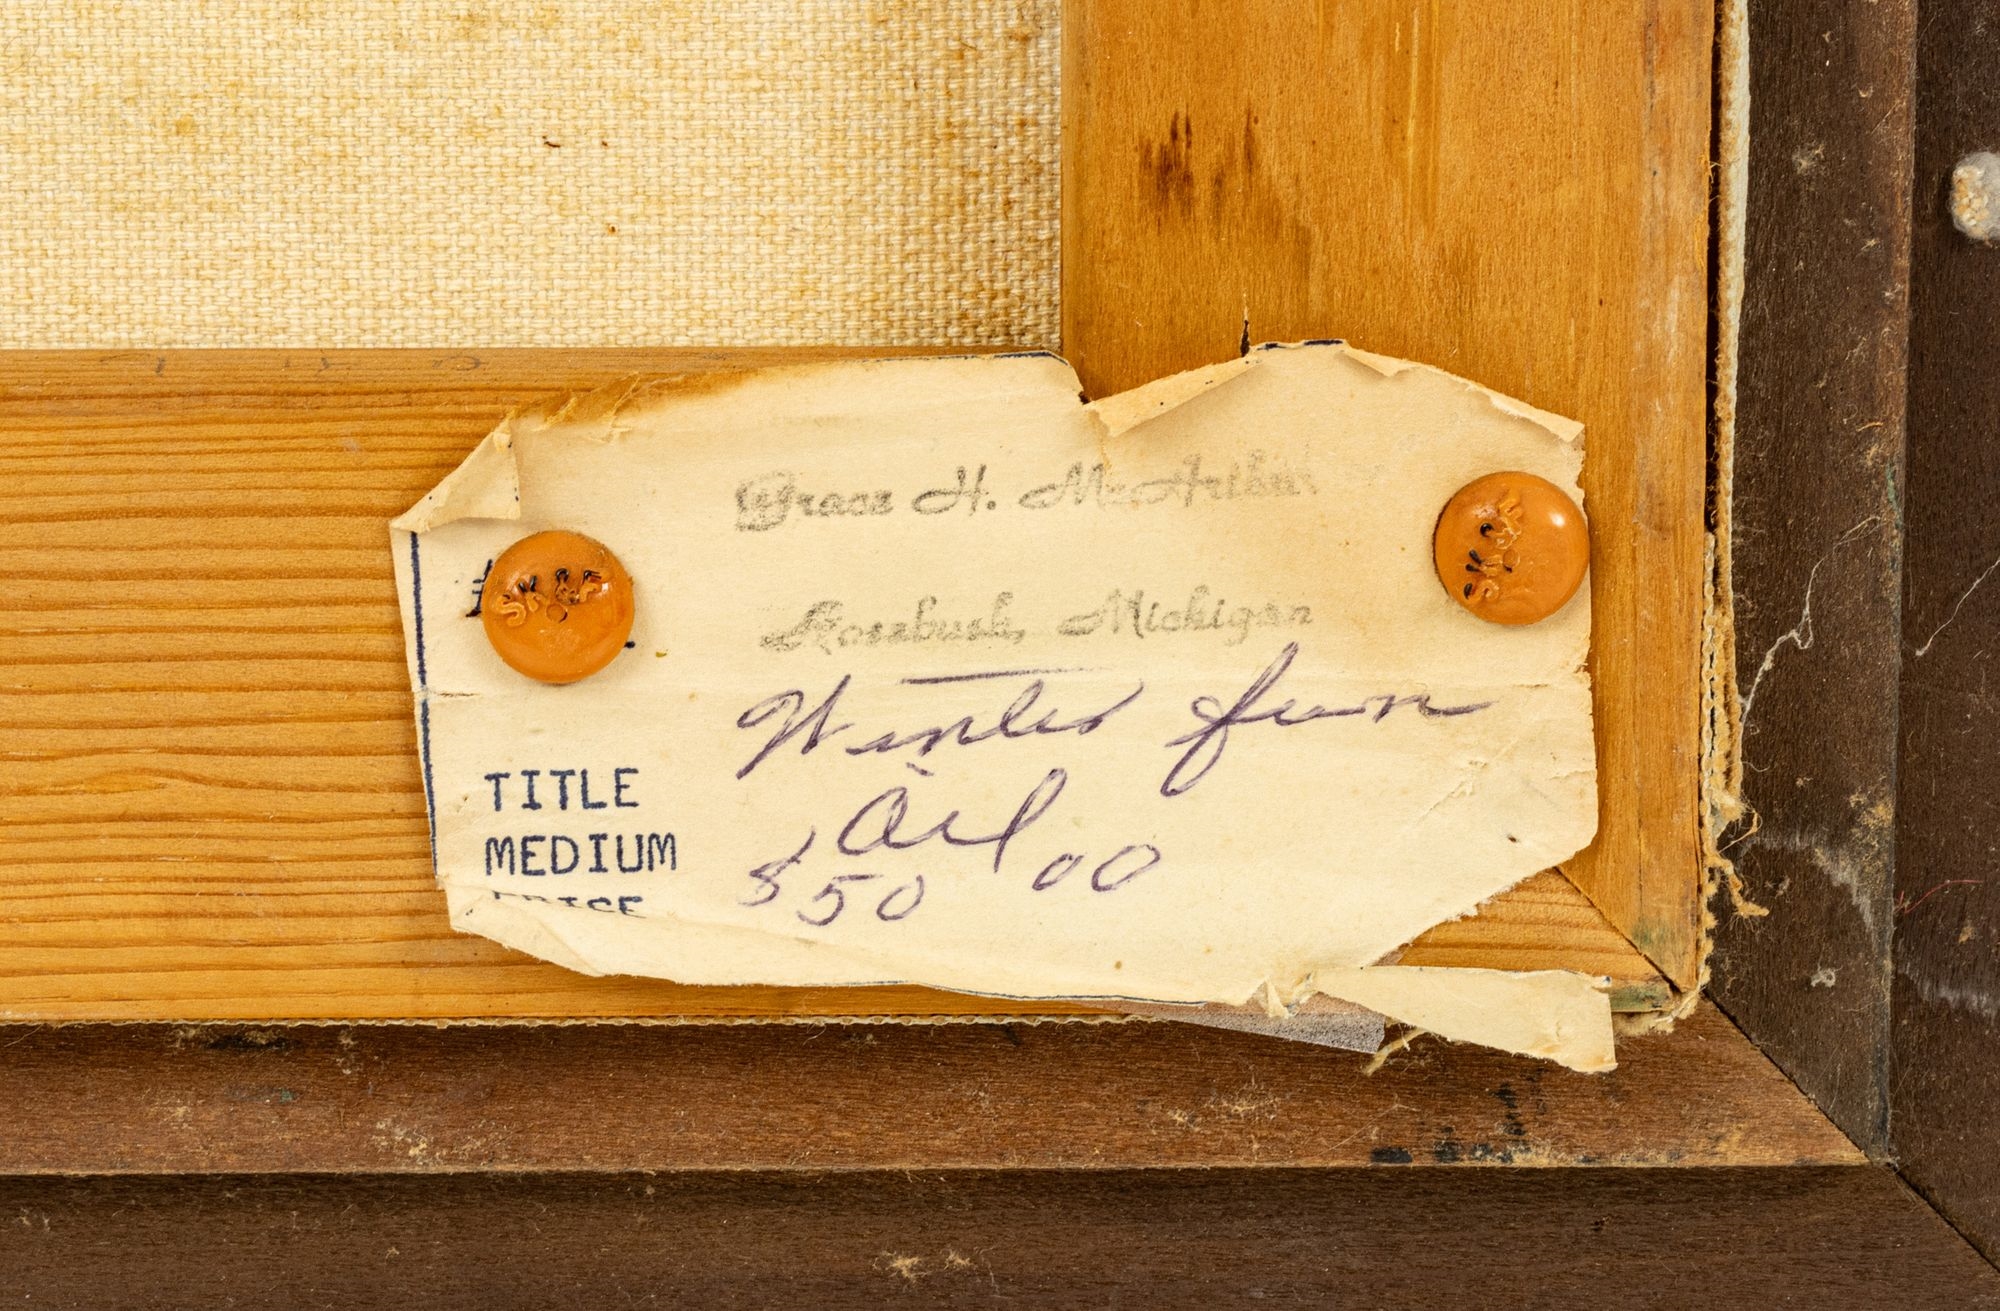 Grace H. McArthur
SK&F
SK&F
Rosebush, Michigan
Winter fun
TITLE
Oil
MEDIUM
$50 00
PRICE